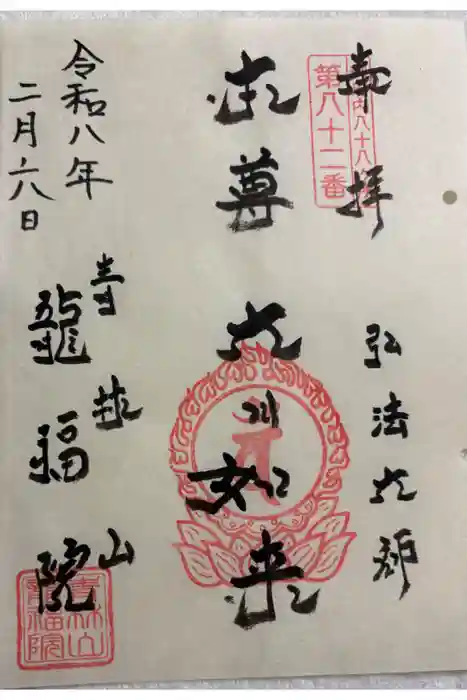 奉拝
内八十八
第八十二番
弘法大師
本尊
大日如来
令和八年
二月六日
青林山
龍福院
青林山
龍福院